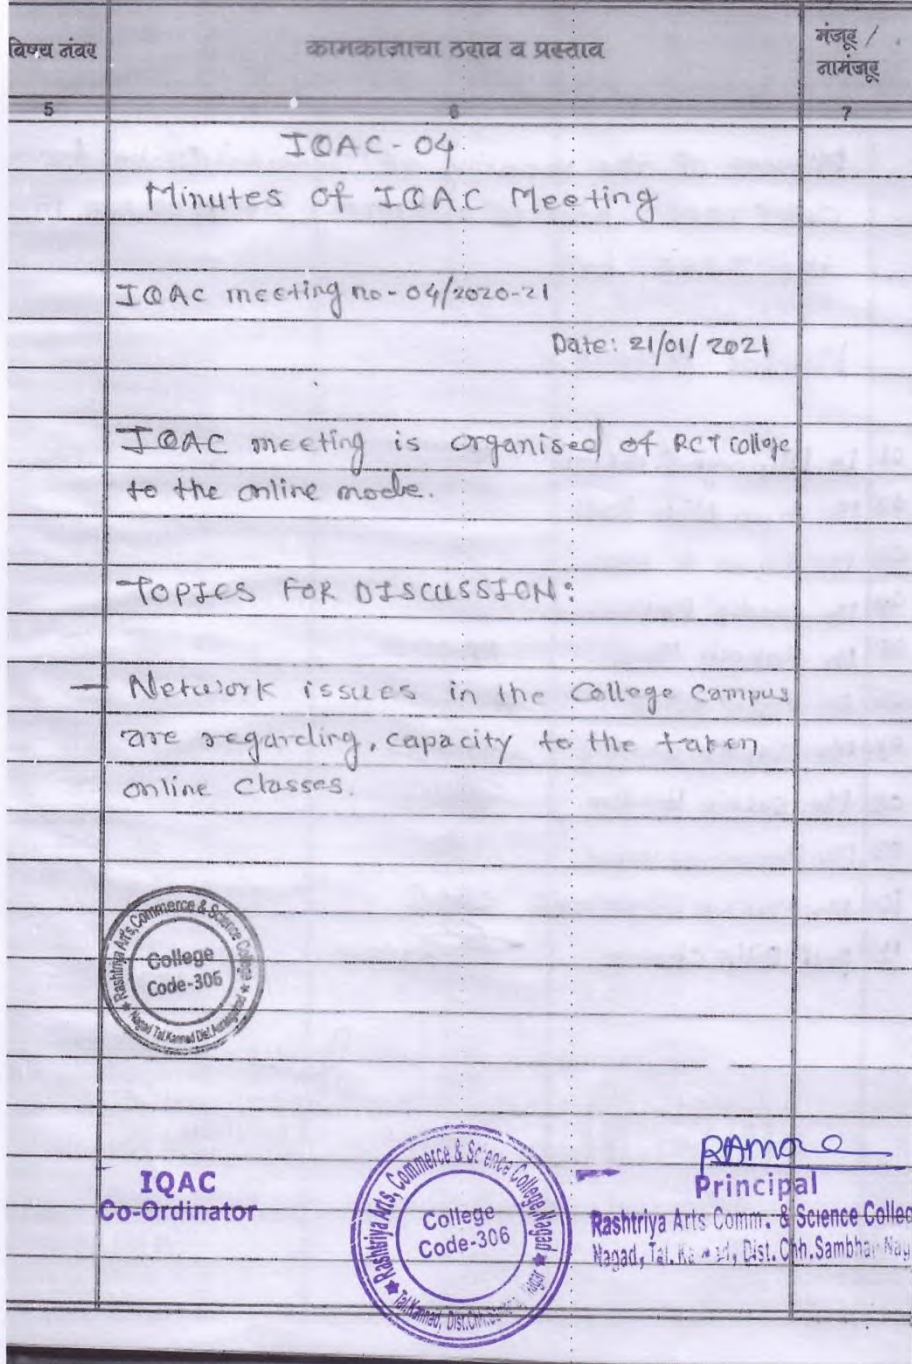 विषय नंबर
कामकाजाचा ठराव व प्रस्ताव
मंजूर /
नामंजूर
5
6
7
IQAC-04
Minutes of IQAC Meeting
IQAC meeting no-04/2020-21
Date: 21/01/2021
IQAC meeting is organised of RCT college
to the online mode.
TOPICS FOR DISCUSSION:
- Network issues in the College Campus
are regarding, capacity to the taken
online classes.
Rashtriya Arts, Commerce & Science College
Nagad Tal.Kannad Dist.Aurangabad
College
Code-306
IQAC
Co-Ordinator
Rashtriya Arts, Commerce & Science College, Nagad
Tal.Kannad, Dist.Chh.
College
Code-306
RAmore
Principal
Rashtriya Arts Comm. & Science Colleg
Nagad, Tal. Dist. Chh.Sambha Nag